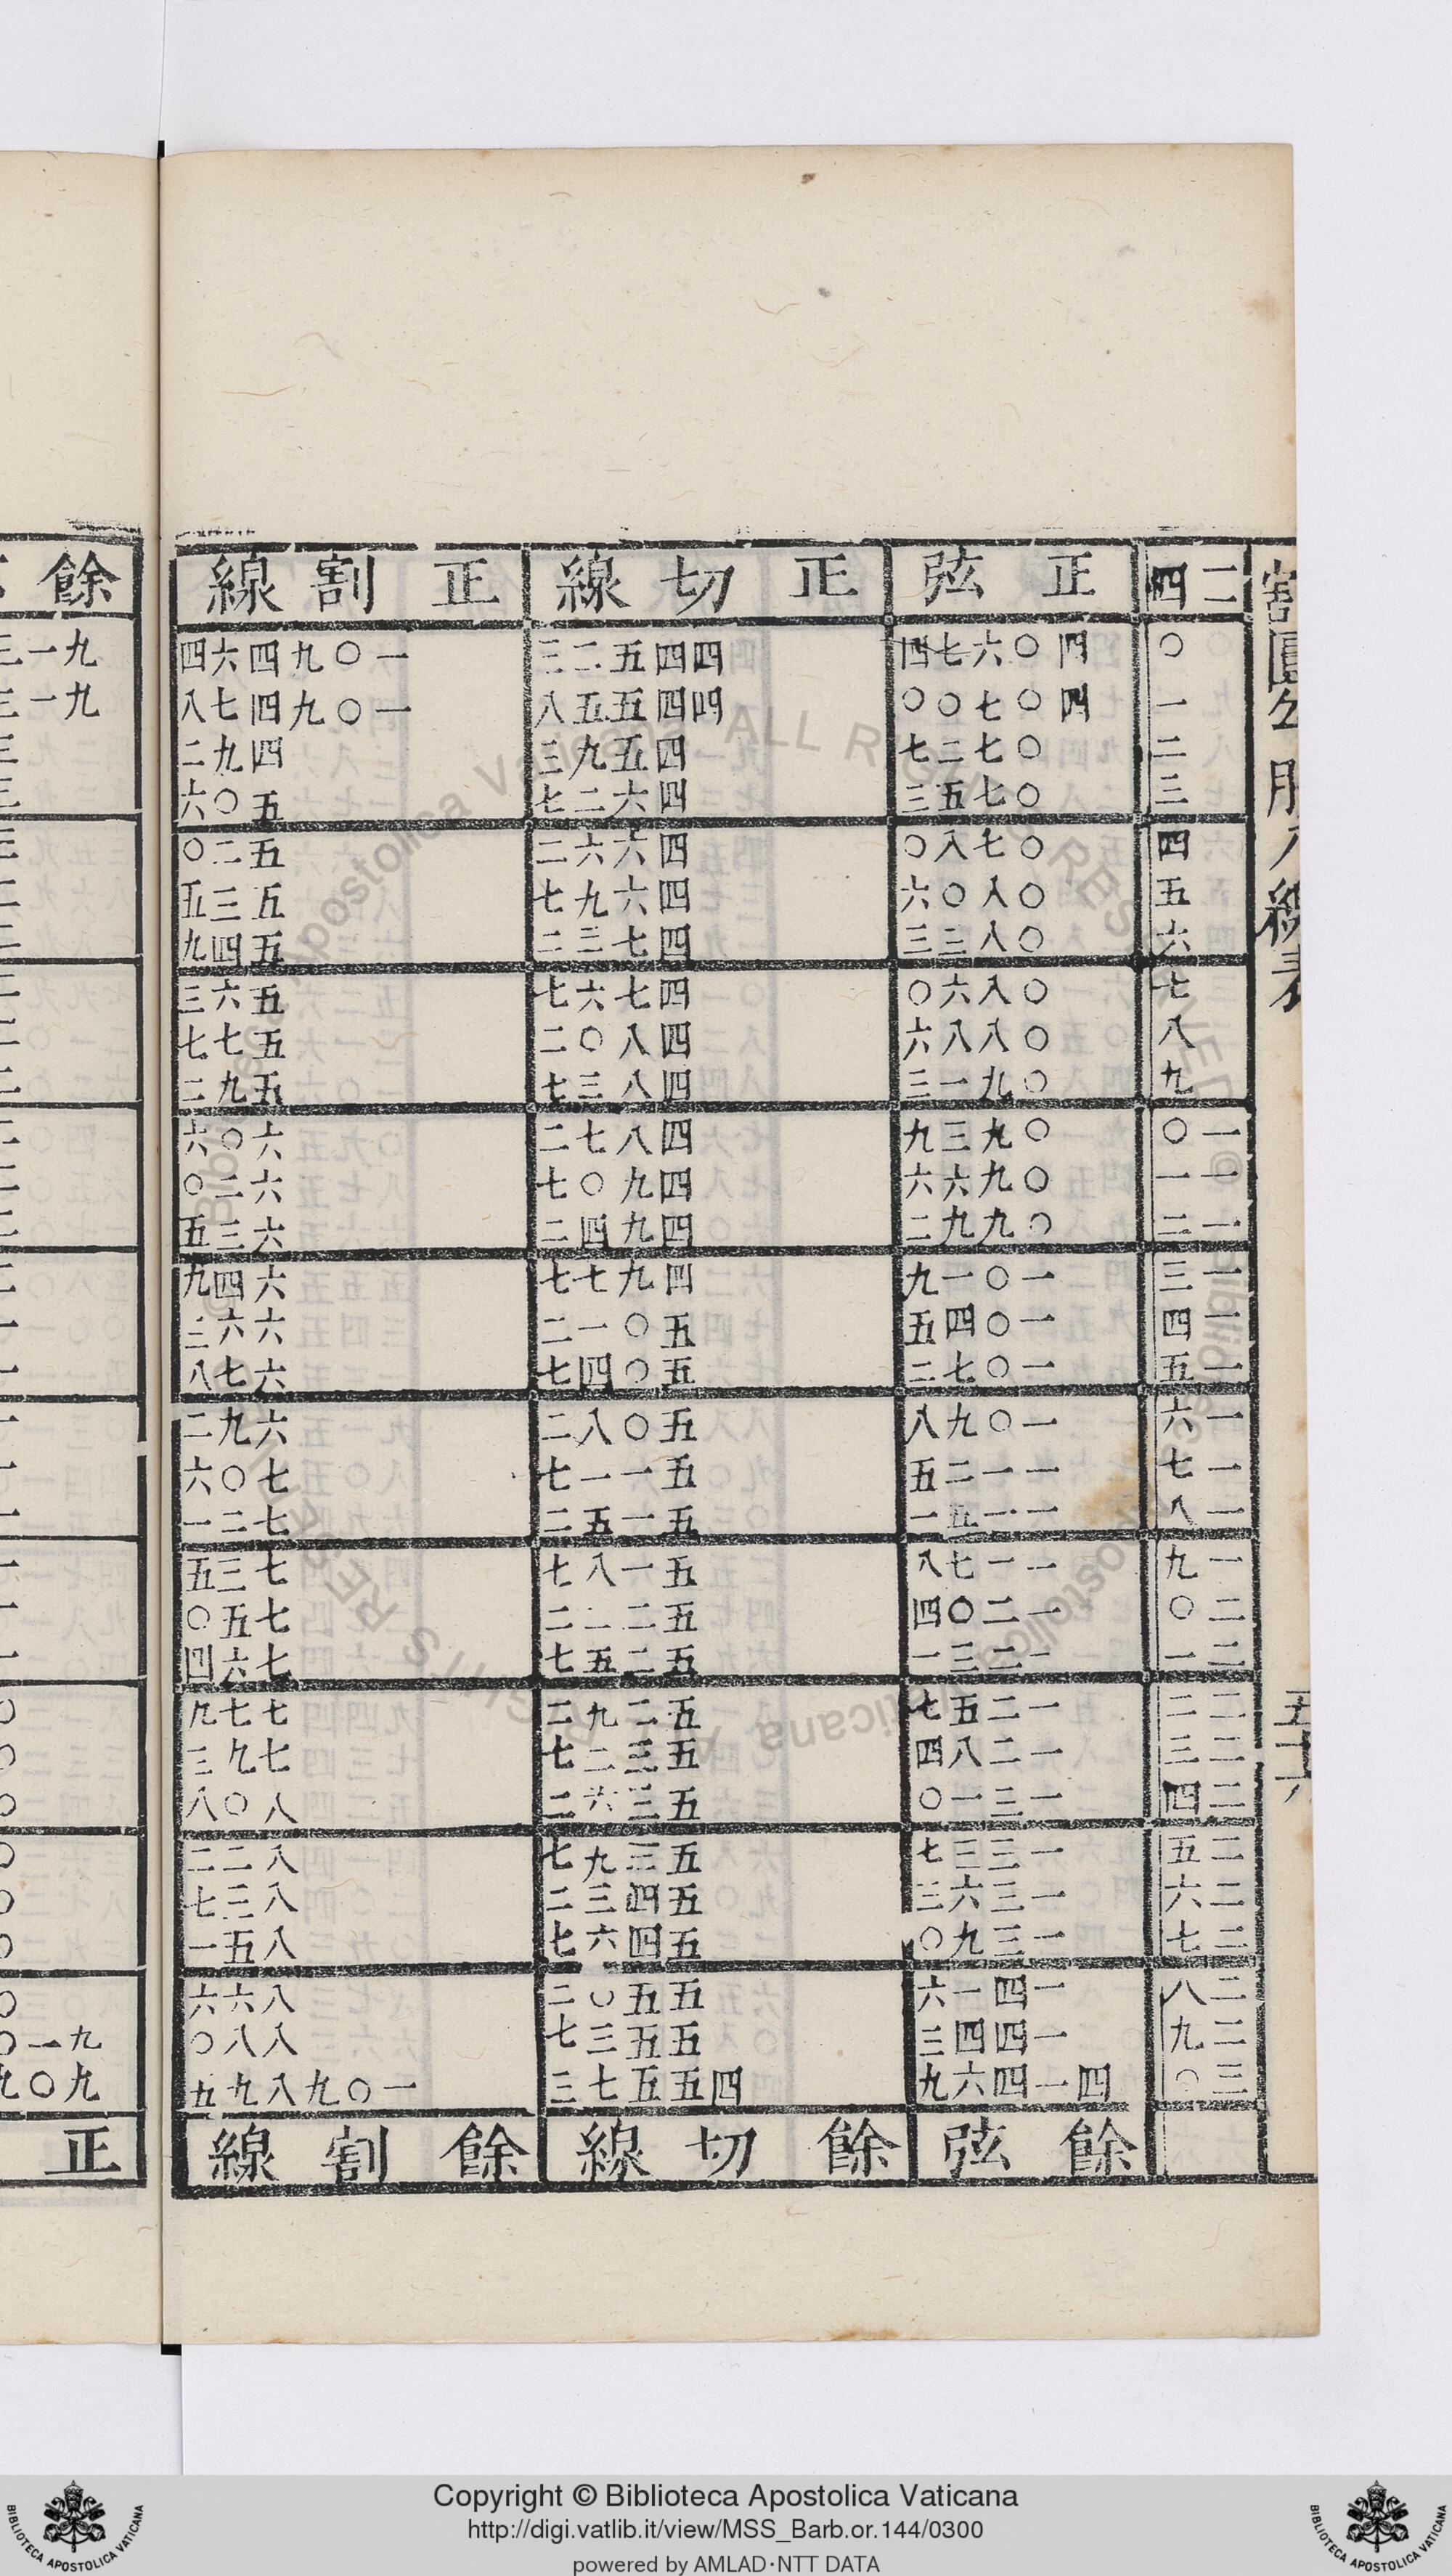 割圓勾股八線表
五十六
二四 正弦 正切線 正割線
〇 四〇六七四 四四五二三 一〇九四六四
一 四〇七〇〇 四四五五八 一〇九四七八
二 〇七二七 四五九三 四九二
三 〇七五三 四六二七 五〇六
四 〇七八〇 四六六二 五二〇
五 〇八〇六 四六九七 五三五
六 〇八三三 四七三二 五四九
七 〇八六〇 四七六七 五六三
八 〇八八六 四八〇二 五七七
九 〇九一三 四八三七 五九二
一〇 〇九三九 四八七二 六〇六
一一 〇九六六 四九〇七 六二〇
一二 〇九九二 四九四二 六三五
一三 一〇一九 四九七七 六四九
一四 一〇四五 五〇一二 六六三
一五 一〇七二 五〇四七 六七八
一六 一〇九八 五〇八二 六九二
一七 一一二五 五一一七 七〇六
一八 一一五一 五一五二 七二一
一九 一一七八 五一八七 七三五
二〇 一二〇四 五二二二 七五〇
二一 一二三一 五二五七 七六四
二二 一二五七 五二九二 七七九
二三 一二八四 五三二七 七九三
二四 一三一〇 五三六二 八〇八
二五 一三三七 五三九七 八二二
二六 一三六三 五四三二 八三七
二七 一三九〇 五四六七 八五一
二八 一四一六 五五〇二 八六六
二九 一四四三 五五三七 八八〇
三〇 四一四六九 四五五七三 一〇九八九五
餘弦 餘切線 餘割線
餘
九一三
九一三
九一〇
九〇九
正
Copyright © Biblioteca Apostolica Vaticana
http://digi.vatlib.it/view/MSS_Barb.or.144/0300
powered by AMLAD·NTT DATA